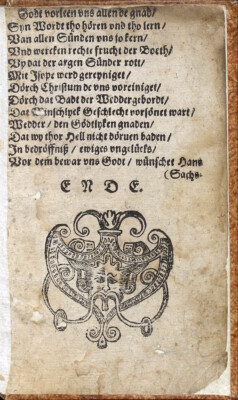 Godt vorleen vns allen de gnad/
Syn Wordt tho hören vnd tho lern/
Van allen Sünden vns to kern/
Vnd wercken rechte frucht der Both/
Vp dat der argen Sünder rott/
Mit Jsope werd gereyniget/
Dörch Christum de vns voreiniget/
Dörch dat Badt der Weddergebordt/
Dat Minschlyck Geschlecht vorsönet wart/
Wedder/ den Gödtlyken gnaden/
Dat wy thor Hell nicht döruen baden/
Jn bedröffniß/ ewiges vnglücks/
Vor dem bewar vns Godt/ wünschet Hans
(Sachs.
ENDE.